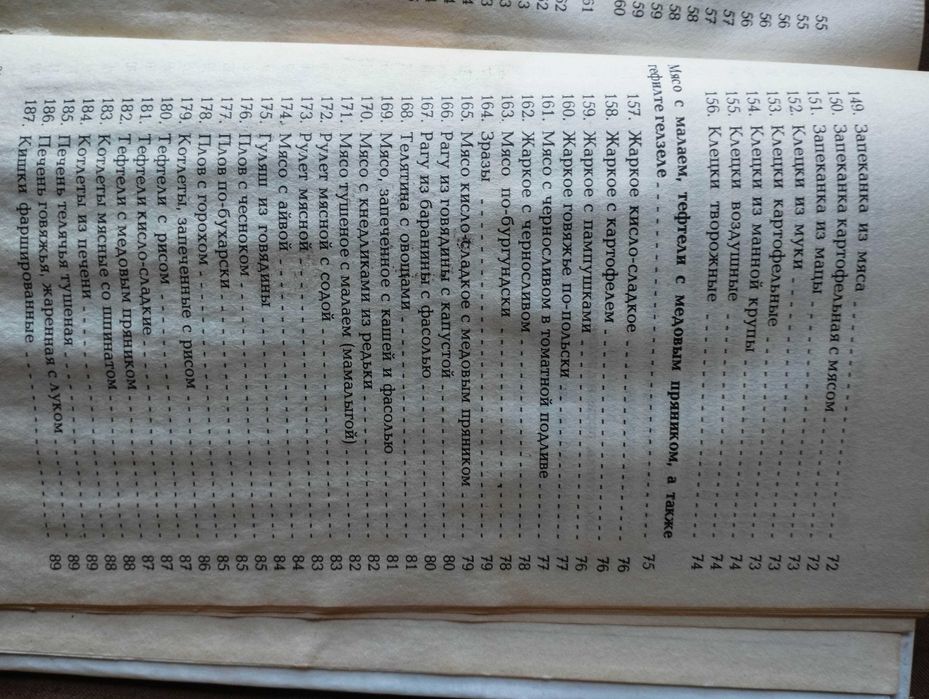 55
55
56
56
56
57
57
58
58
59
59
60
61
62
62
149. Запеканка из мяса - - - - - - - - 72
150. Запеканка картофельная с мясом - - - - - - - - 72
151. Запеканка из мацы - - - - - - - - 73
152. Клецки из муки - - - - - - - - 73
153. Клецки картофельные - - - - - - - - 73
154. Клецки из манной крупы - - - - - - - - 74
155. Клецки воздушные - - - - - - - - 74
156. Клецки творожные - - - - - - - - 74
Мясо с малаем, тефтели с медовым пряником, а также
гефилте гелзеле - - - - - - - - 75
157. Жаркое кисло-сладкое - - - - - - - - 76
158. Жаркое с картофелем - - - - - - - - 76
159. Жаркое с пампушками - - - - - - - - 76
160. Жаркое говяжье по-польски - - - - - - - - 77
161. Мясо с черносливом в томатной подливе - - - - - - - - 77
162. Жаркое с черносливом - - - - - - - - 78
163. Мясо по-бургундски - - - - - - - - 78
164. Зразы - - - - - - - - 79
165. Мясо кисло-сладкое с медовым пряником - - - - - - - - 79
166. Рагу из говядины с капустой - - - - - - - - 80
167. Рагу из баранины с фасолью - - - - - - - - 80
168. Телятина с овощами - - - - - - - - 81
169. Мясо, запеченное с кашей и фасолью - - - - - - - - 81
170. Мясо с кнедликами из редьки - - - - - - - - 82
171. Мясо тушеное с малаем (мамалыгой). - - - - - - - - 82
172. Рулет мясной с содой - - - - - - - - 83
173. Рулет мясной - - - - - - - - 83
174. Мясо с айвой - - - - - - - - 84
175. Гуляш из говядины - - - - - - - - 84
176. Плов с чесноком - - - - - - - - 85
177. Плов по-бухарски - - - - - - - - 85
178. Плов с горохом - - - - - - - - 85
179. Котлеты, запеченные с рисом - - - - - - - - 86
180. Тефтели с рисом - - - - - - - - 87
181. Тефтели кисло-сладкие - - - - - - - - 87
182. Тефтели с медовым пряником - - - - - - - - 87
183. Котлеты мясные со шпинатом - - - - - - - - 88
184. Котлеты из печени - - - - - - - - 88
185. Печень телячья тушеная - - - - - - - - 89
186. Печень говяжья, жаренная с луком - - - - - - - - 89
187. Кишки фаршированные - - - - - - - - 89